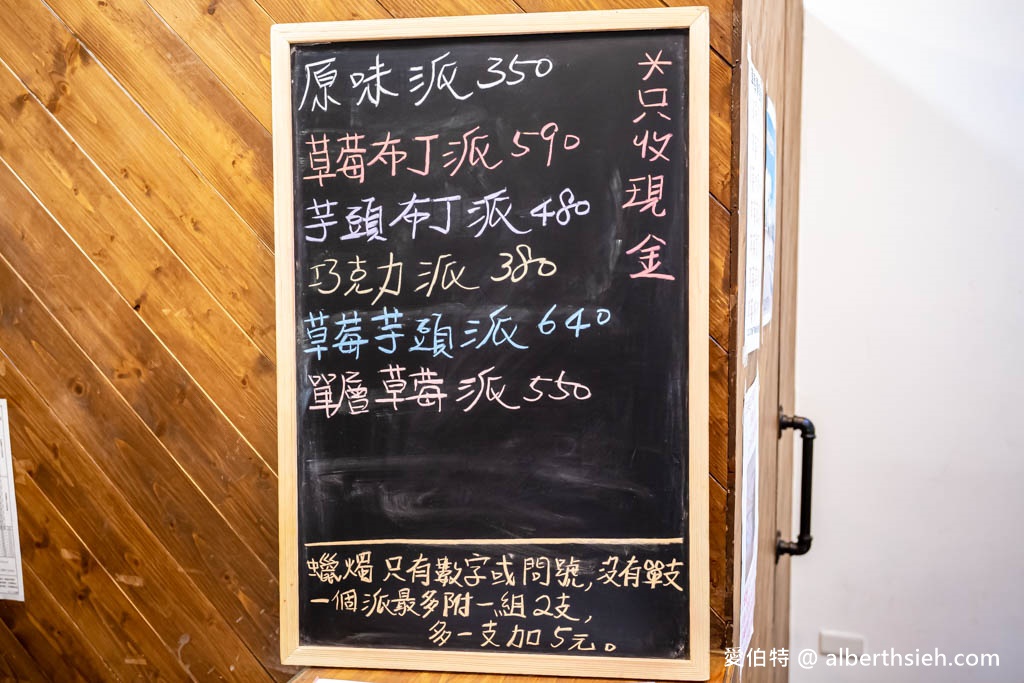 原味派 350
草莓布丁派 590
芋頭布丁派 480
巧克力派 380
草莓芋頭派 640
單層草莓派 550
*只收現金
蠟燭只有數字或問號,沒有單支
一個派最多附一組2支,
多一支加5元。
愛伯特 @ alberthsieh.com